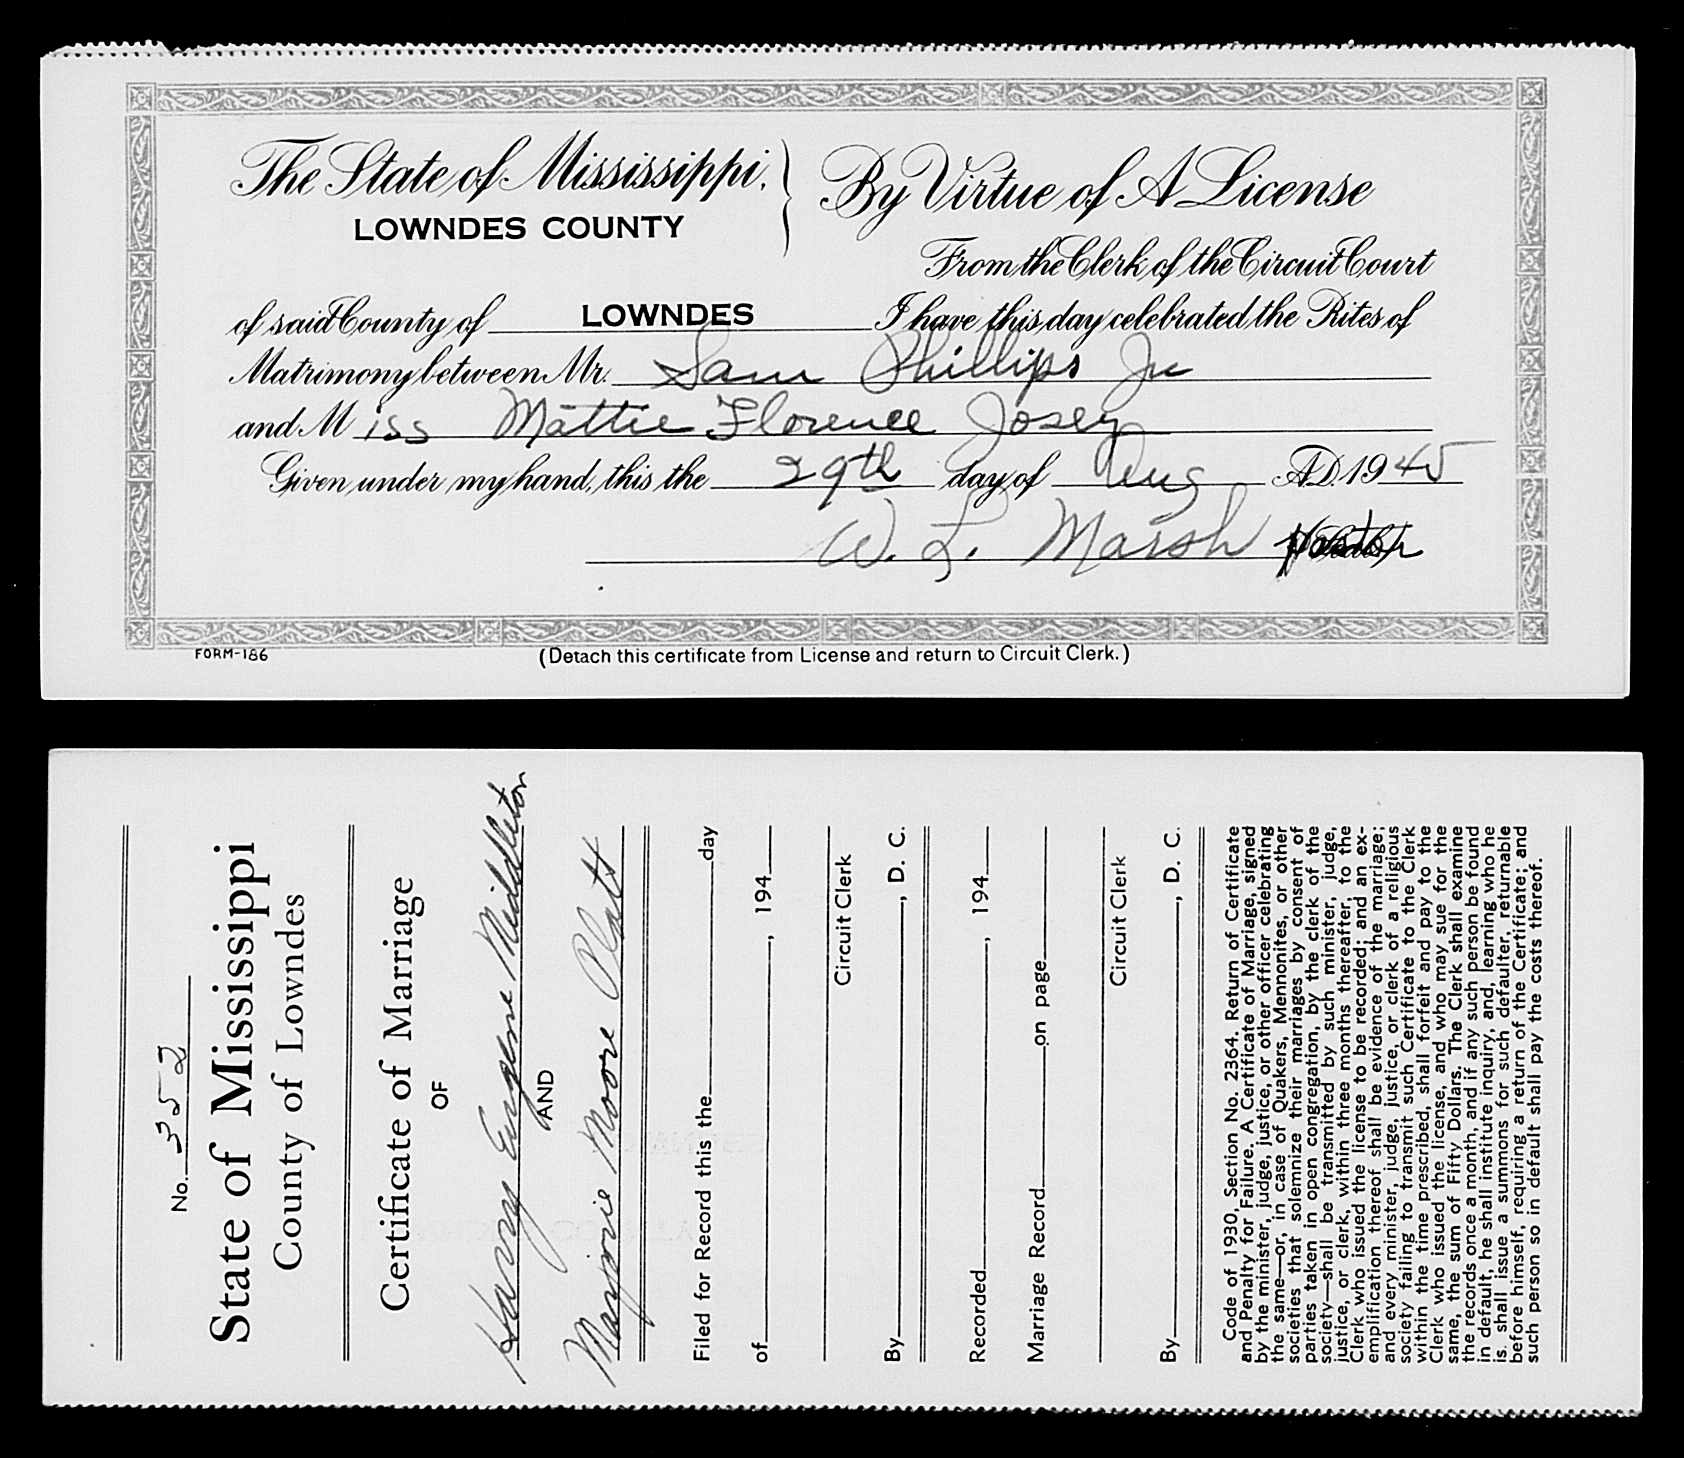 The State of Mississippi,
LOWNDES COUNTY
By Virtue of A License
From the Clerk of the Circuit Court
of said County of LOWNDES I have this day celebrated the Rites of
Matrimony between Mr. Sam Phillips Jr
and Miss Mattie Florence Josey
Given under my hand, this the 29th day of Aug A.D. 1945
W. L. Marsh
FORM-186
(Detach this certificate from License and return to Circuit Clerk.)
No. 352
State of Mississippi
County of Lowndes
Certificate of Marriage
OF
Harry Eugene Middleton
AND
Marjorie Moore Platt
Filed for Record this the day
of , 194
Circuit Clerk
By , D. C.
Recorded , 194
Marriage Record on page
Circuit Clerk
By , D. C.
Code of 1930, Section No. 2364. Return of Certificate
and Penalty for Failure. A Certificate of Marriage, signed
by the minister, judge, justice, or other officer celebrating
the same—or, in case of Quakers, Mennonites, or other
societies that solemnize their marriages by consent of
parties taken in open congregation, by the clerk of the
society—shall be transmitted by such minister, judge,
justice, or clerk, within three months thereafter, to the
Clerk who issued the license to be recorded; and an ex-
emplification thereof shall be evidence of the marriage;
and every minister, judge, justice, or clerk of a religious
society failing to transmit such Certificate to the Clerk
within the time prescribed, shall forfeit and pay to the
Clerk who issued the license, and who may sue for the
same, the sum of Fifty Dollars. The Clerk shall examine
the records once a month, and if any such person be found
in default, he shall institute inquiry, and, learning who he
is, shall issue a summons for such defaulter, returnable
before himself, requiring a return of the Certificate; and
such person so in default shall pay the costs thereof.